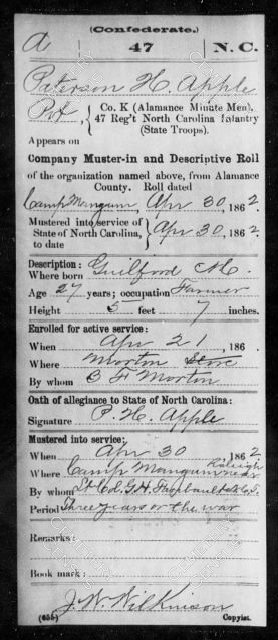 (Confederate.)
A 47 N.C.
Paterson H. Apple
Pvt, Co. K (Alamance Minute Men),
47 Reg't North Carolina Infantry
(State Troops).
Appears on
Company Muster-in and Descriptive Roll
of the organization named above, from Alamance
County. Roll dated
Camp Mangum, Apr 30, 1862.
Mustered into service of
State of North Carolina,
to date
Apr 30, 1862.
Description:
Where born Guilford
Age 27 years; occupation Farmer
Height 5 feet 7 inches.
Enrolled for active service:
When Apr 21, 186 .
Where Morton Store
By whom B F Morton
Oath of allegiance to State of North Carolina:
Signature P. H. Apple
Mustered into service:
When Apr 30, 1862
Where Camp Mangum near Raleigh
By whom Lt Col. G. H. Faribault
Period three years or the war
Remarks:
Book mark:
J. W. Wilkinson
(655) Copyist.